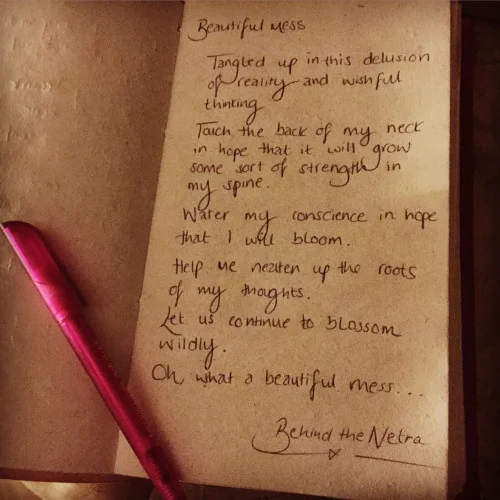 Beautiful mess
Tangled up in this delusion
of reality and wishful
thinking
Touch the back of my neck
in hope that it will grow
some sort of strength in
my spine.
Water my conscience in hope
that I will bloom.
Help me neaten up the roots
of my thoughts.
Let us continue to blossom
wildly.
Oh, what a beautiful mess...
Behind the Netra